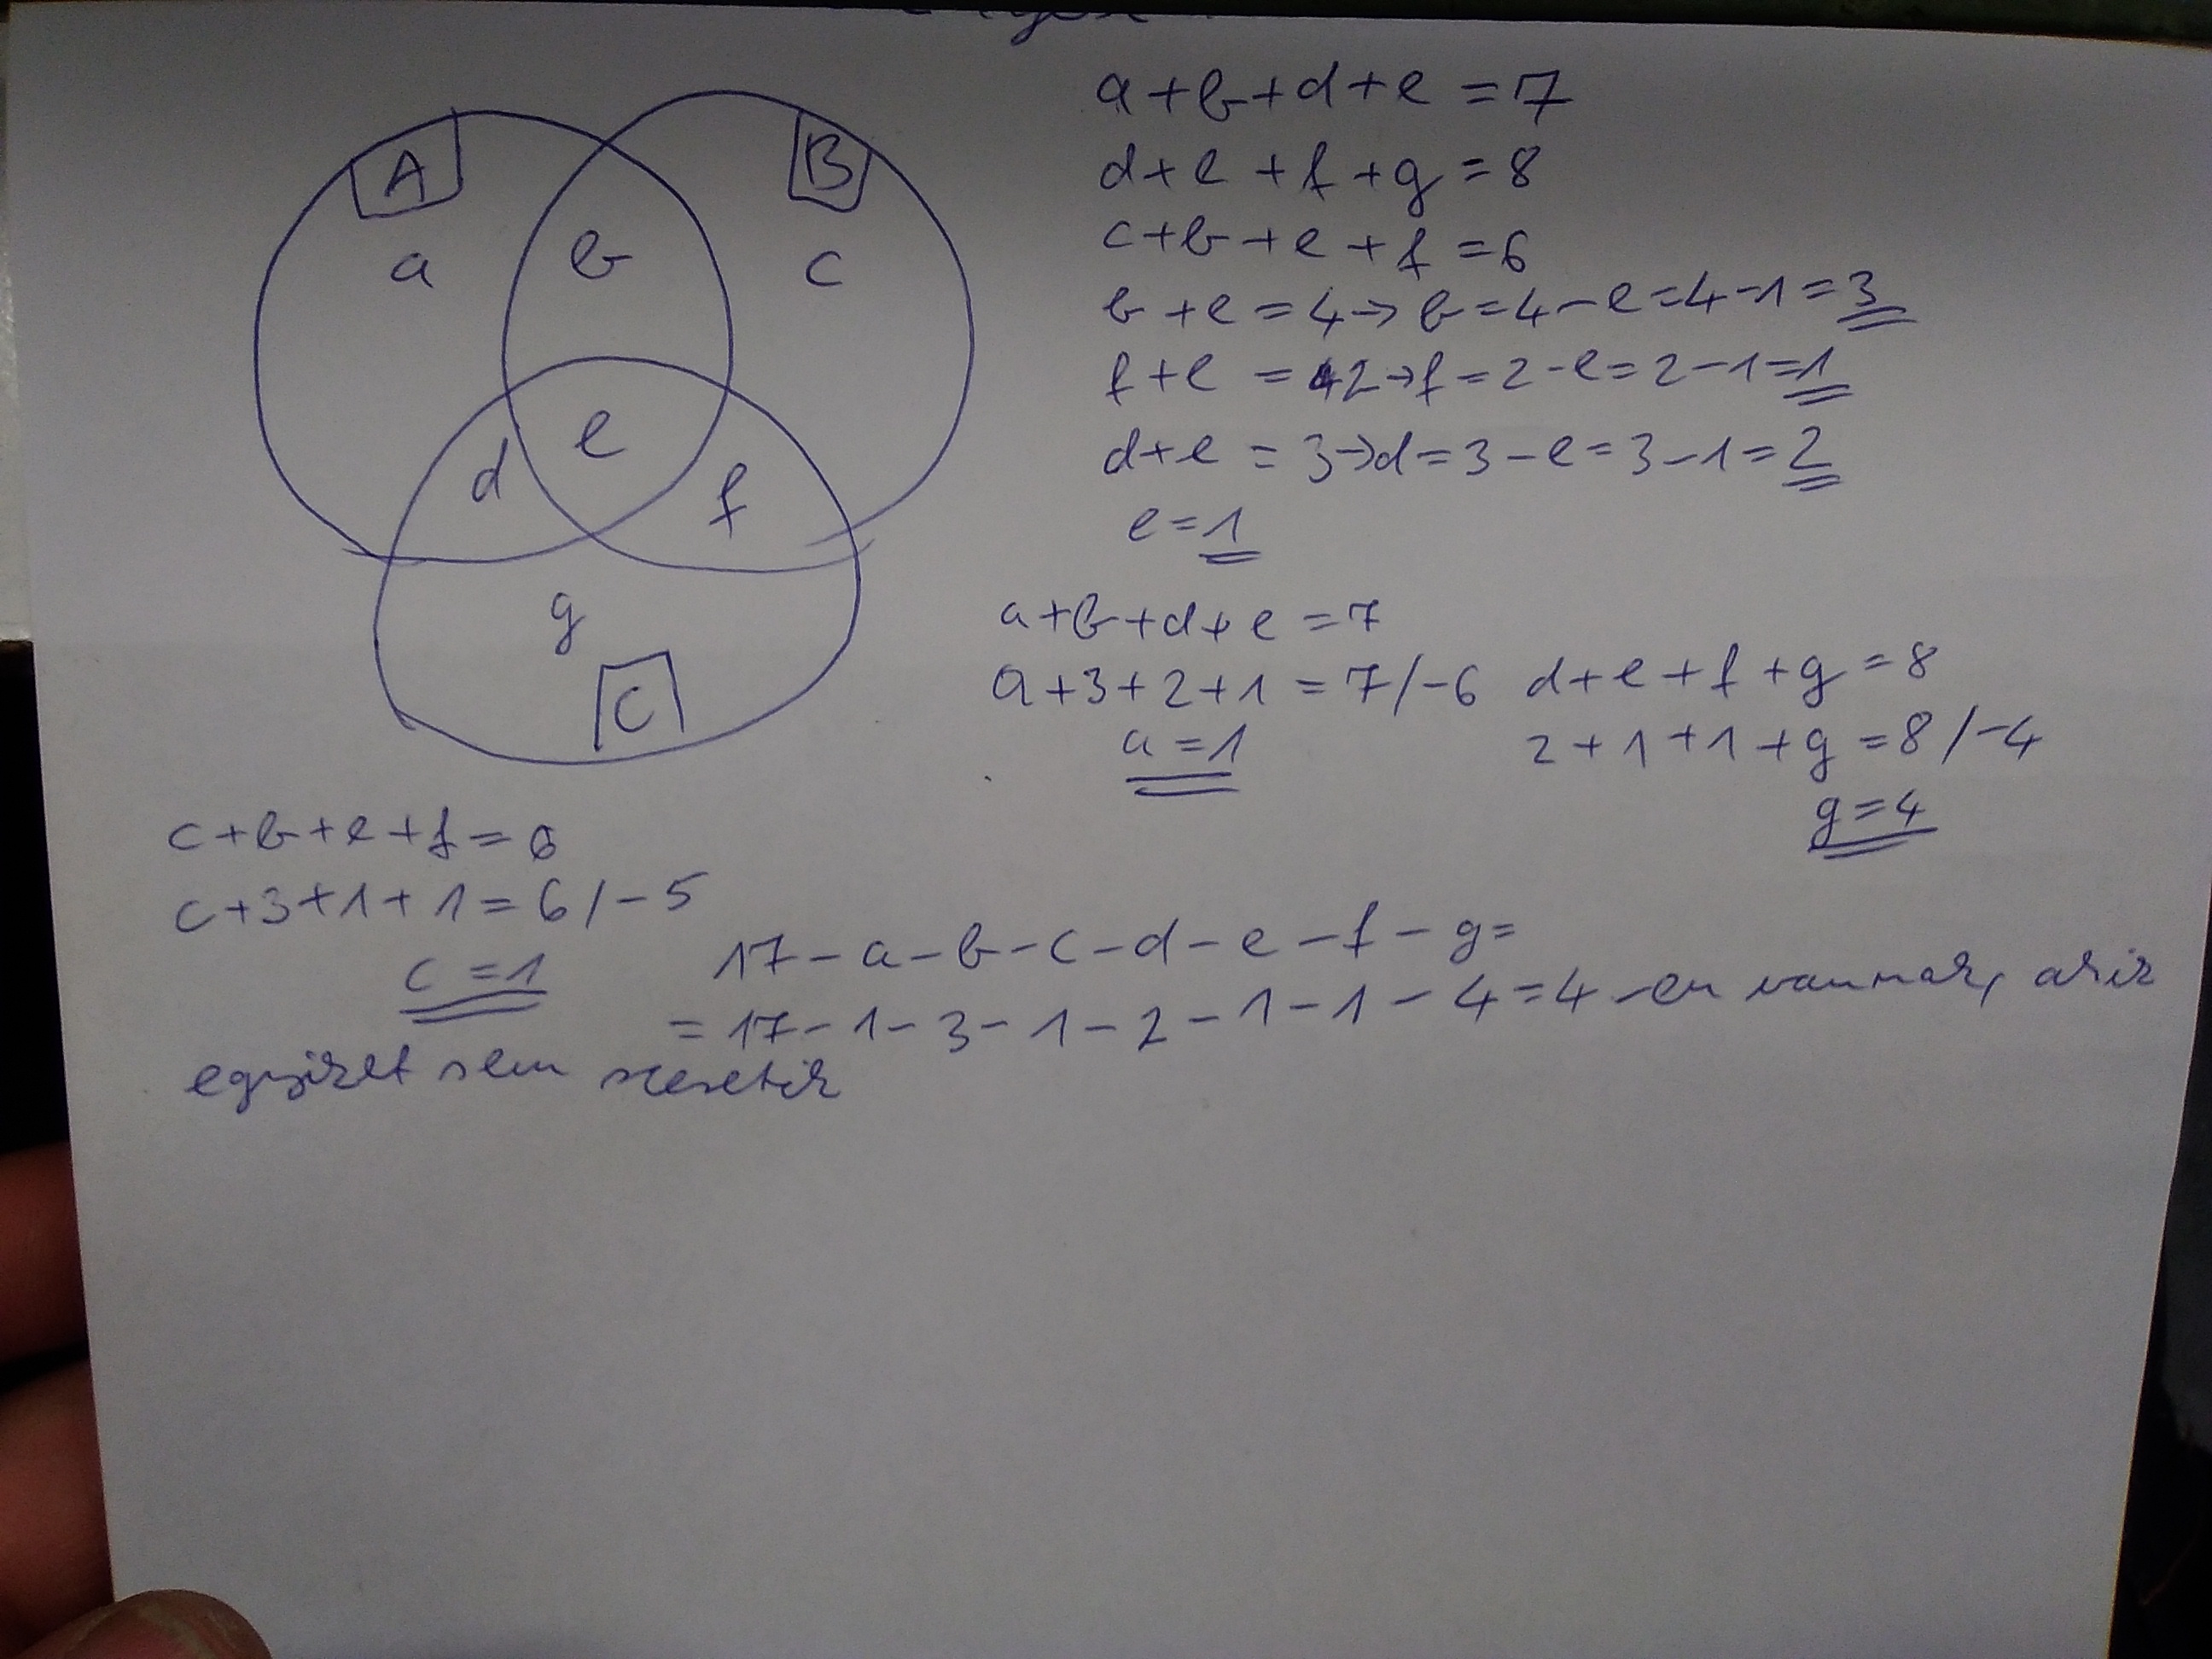 A
B
a
b
c
d
e
f
g
C
a+b+d+e=7
d+e+f+g=8
c+b+e+f=6
b+e=4→b=4-e=4-1=3
f+e=2→f=2-e=2-1=1
d+e=3→d=3-e=3-1=2
e=1
a+b+d+e=7
a+3+2+1=7/-6
a=1
d+e+f+g=8
2+1+1+g=8/-4
g=4
c+b+e+f=6
c+3+1+1=6/-5
c=1
17-a-b-c-d-e-f-g=
=17-1-3-1-2-1-1-4=4-en vannak, akik
egyiket sem szeretik